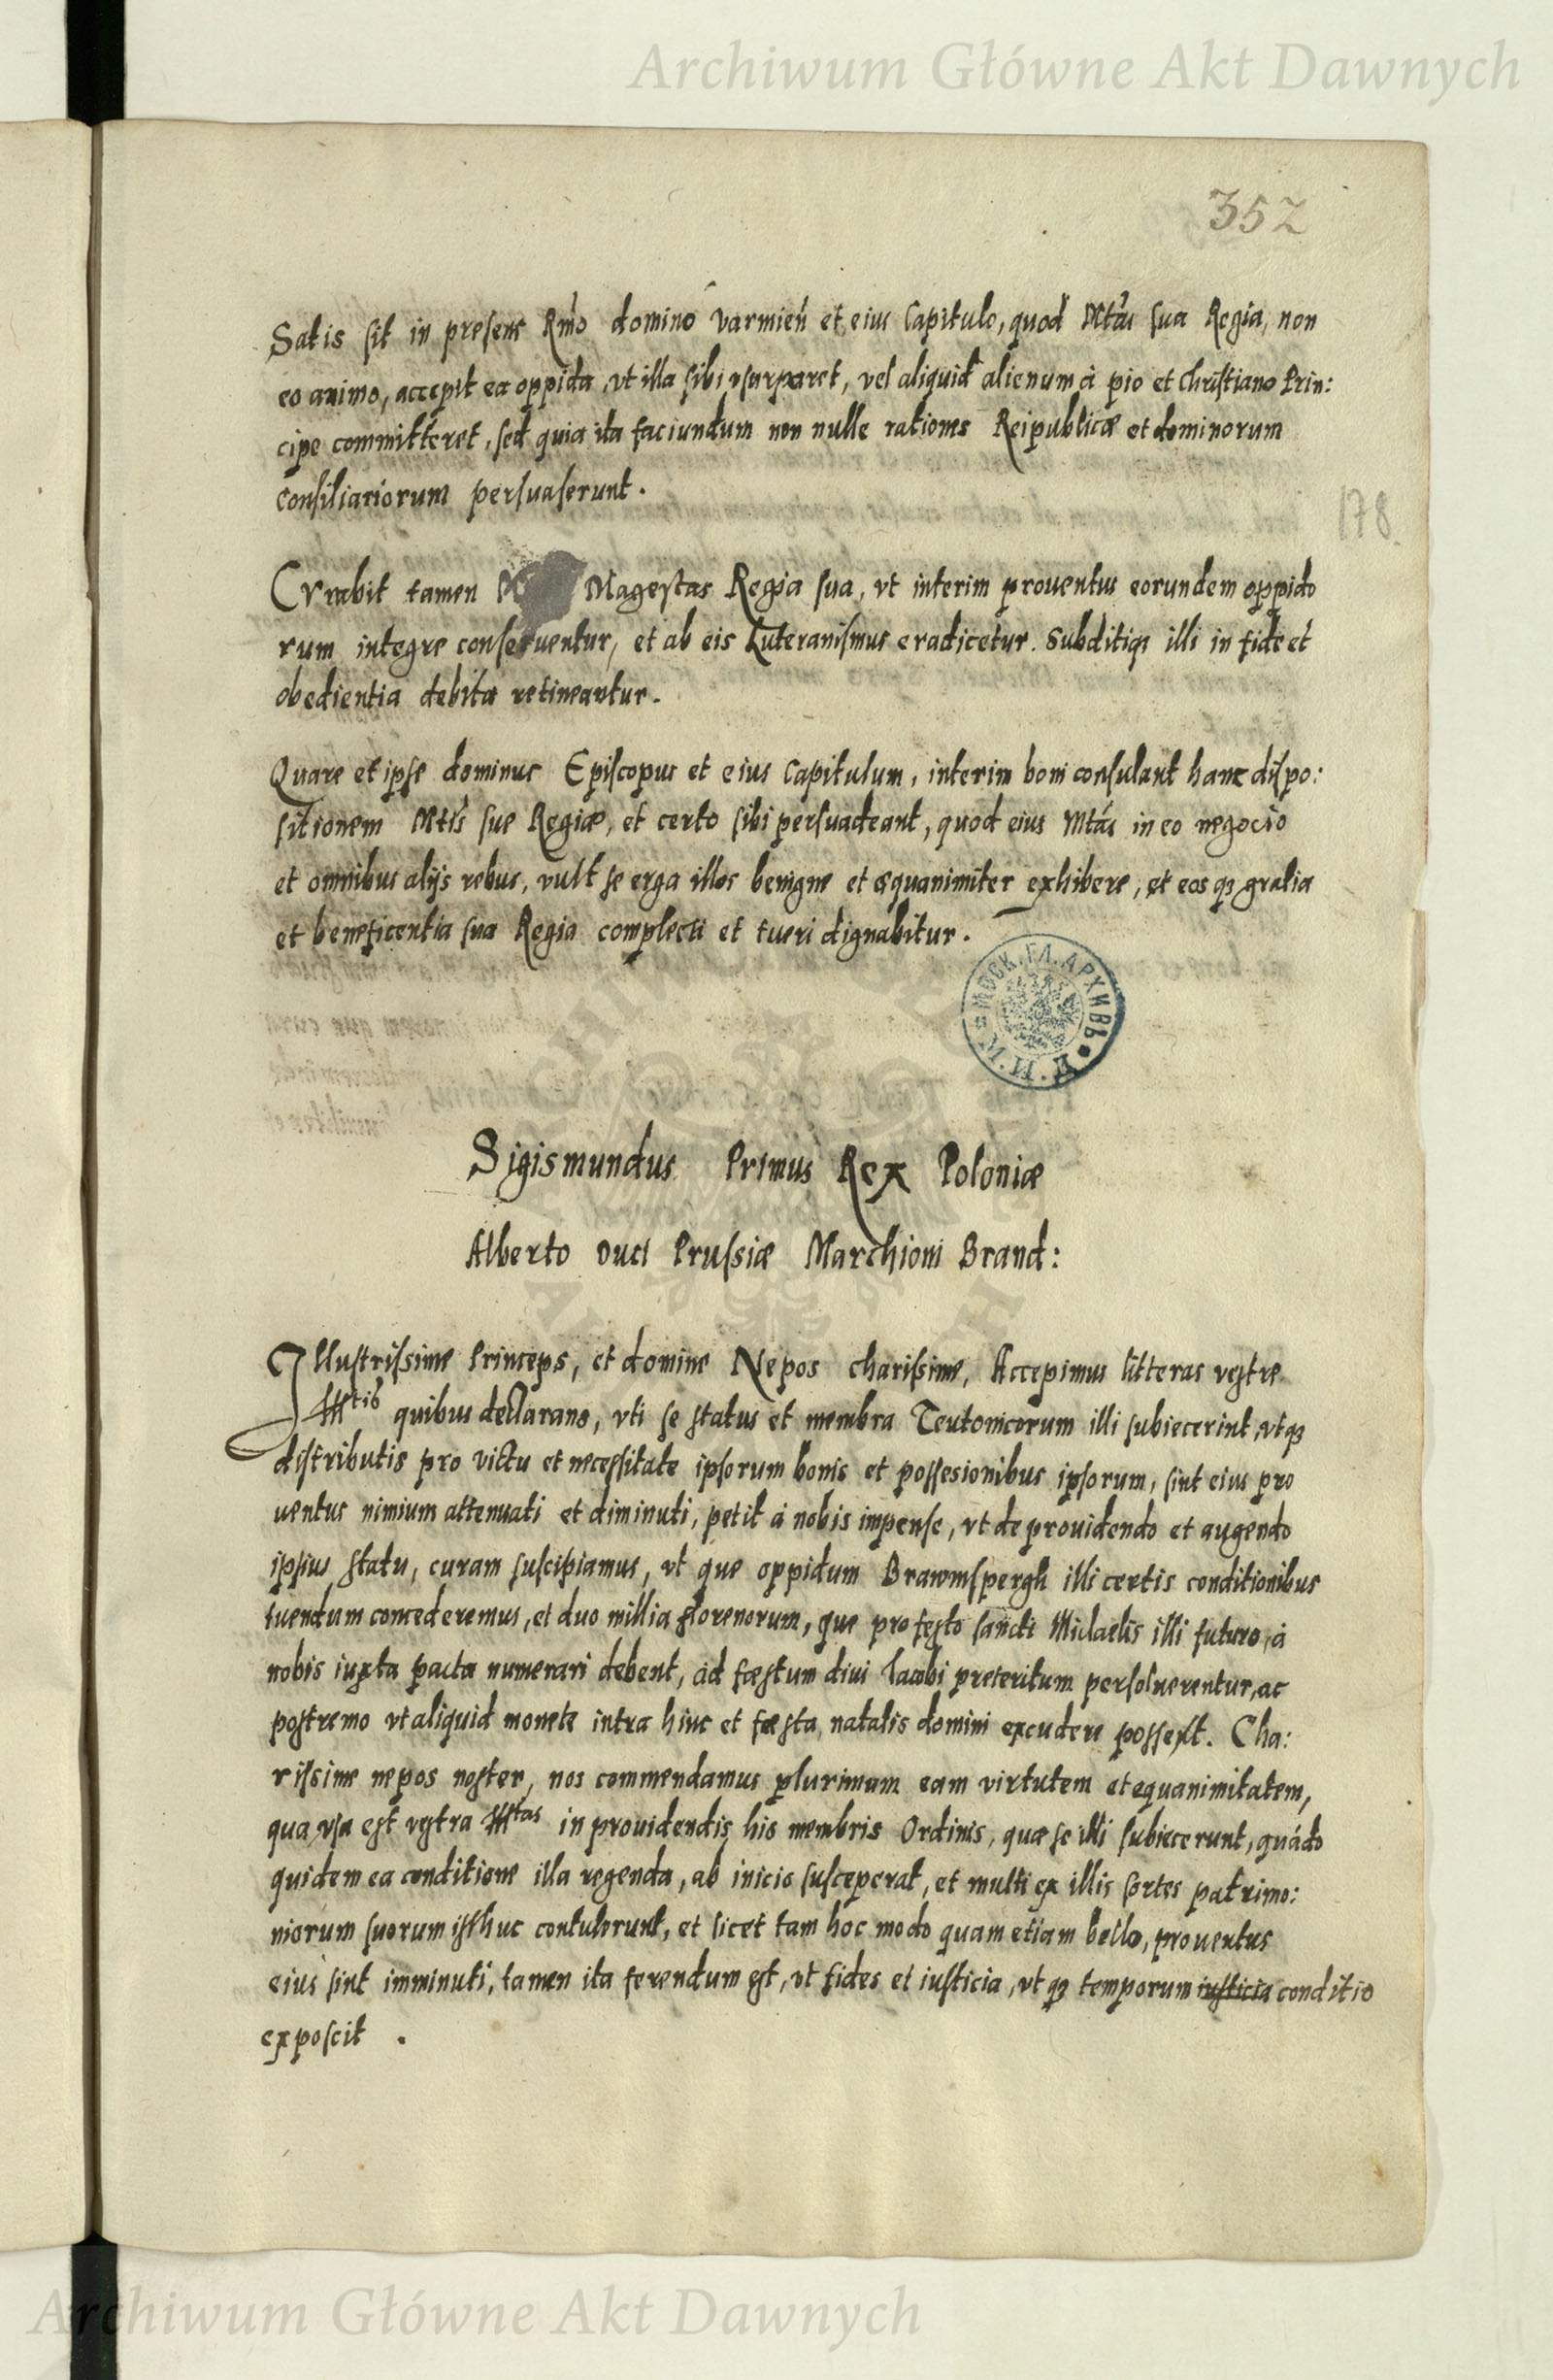 Archiwum Główne Akt Dawnych
352
Satis sit in presens Rmo domino Varmien et eius Capitulo, quod Mtas sua Regia, non
eo animo, accepit ea oppida, vt illa sibi vsurparet, vel aliquid alienum à pio et Christiano Prin:
cipe committeret, sed quia ita faciundum non nulle rationes Reipublicæ et dominorum
Consiliariorum persuaserunt.
178
Curabit tamen Magestas Regia sua, vt interim prouentus eorundem oppido
rum integre conseruentur, et ab eis Luteranismus eradicetur. Subditiq3 illi in fide et
obedientia debita retineantur.
Quare et ipse dominus Episcopus et eius Capitulum, interim boni consulant hanc dispo:
sitionem Mtis sue Regiæ, et certo sibi persuadeant, quod eius Mtas in eo negocio
et omnibus alijs rebus, vult se erga illos benigne et æquanimiter exhibere, et eos q3 gratia
et beneficentia sua Regia complecti et tueri dignabitur.
МОСК. ГЛ. АРХИВЪ
Sigismundus Primus Rex Poloniæ
Alberto Duci Prussiæ Marchioni Brand:
Illustrissime Princeps, et domine Nepos charissime, Accepimus litteras vestre
Mtis quibus declarans, vti se status et membra Teutonicorum illi subiecerint, vtq3
distributis pro victu et necessitate ipsorum bonis et possesionibus ipsorum, sint eius pro
uentus nimium attenuati et diminuti, petit à nobis impense, vt de prouidendo et augendo
ipsius statu, curam suscipiamus, vt que oppidum Brawnspergk illi certis conditionibus
tuendum concederemus, et duo millia florenorum, que pro festo sancti Michaelis illi futuro, à
nobis iuxta pacta numerari debent, ad fæstum diui Iacobi preteritum persoluerentur, ac
postremo vt aliquid monete intra hinc et fæsta natalis domini excudere posset. Cha:
rissime nepos noster, nos commendamus plurimum eam virtutem et equanimitatem,
qua vsa est vestra Mtas in prouidendis his membris Ordinis, quæ se illi subiecerunt, quádo
quidem ea conditione illa regenda, ab inicio susceperat, et multi ex illis sortes patrimo:
niorum suorum isthuc contulerunt, et licet tam hoc modo quam etiam bello, prouentus
eius sint imminuti, tamen ita ferendum est, vt fides et iusticia, vt q3 temporum iusticia conditio
exposcit.
Archiwum Główne Akt Dawnych